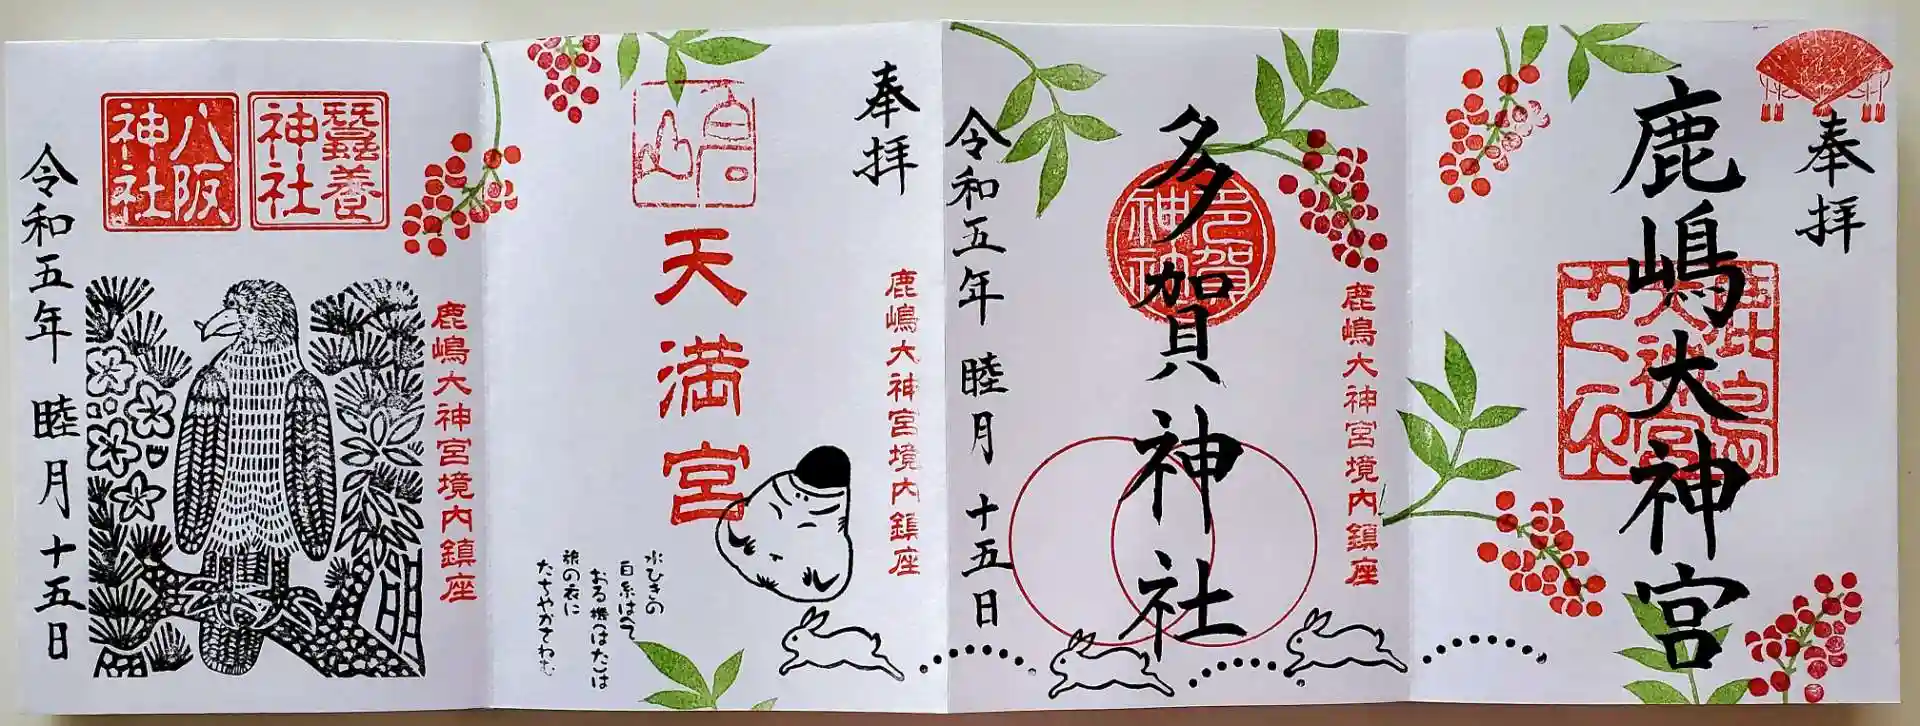 奉拝
鹿嶋大神宮
鹿嶋大神宮境内鎮座
多賀神社
令和五年 睦月 十五日
奉拝
鹿嶋大神宮境内鎮座
天満宮
水ひきの
白糸はへて
おる機はたは
旅の衣に
たちやかさねむ
鹿嶋大神宮境内鎮座
蠶養神社
八阪神社
令和五年 睦月 十五日